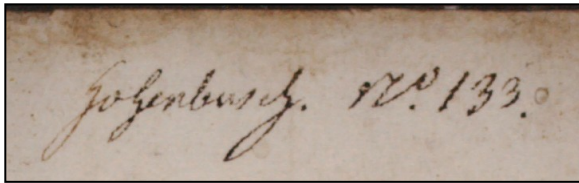 Hohenbusch. No. 133.